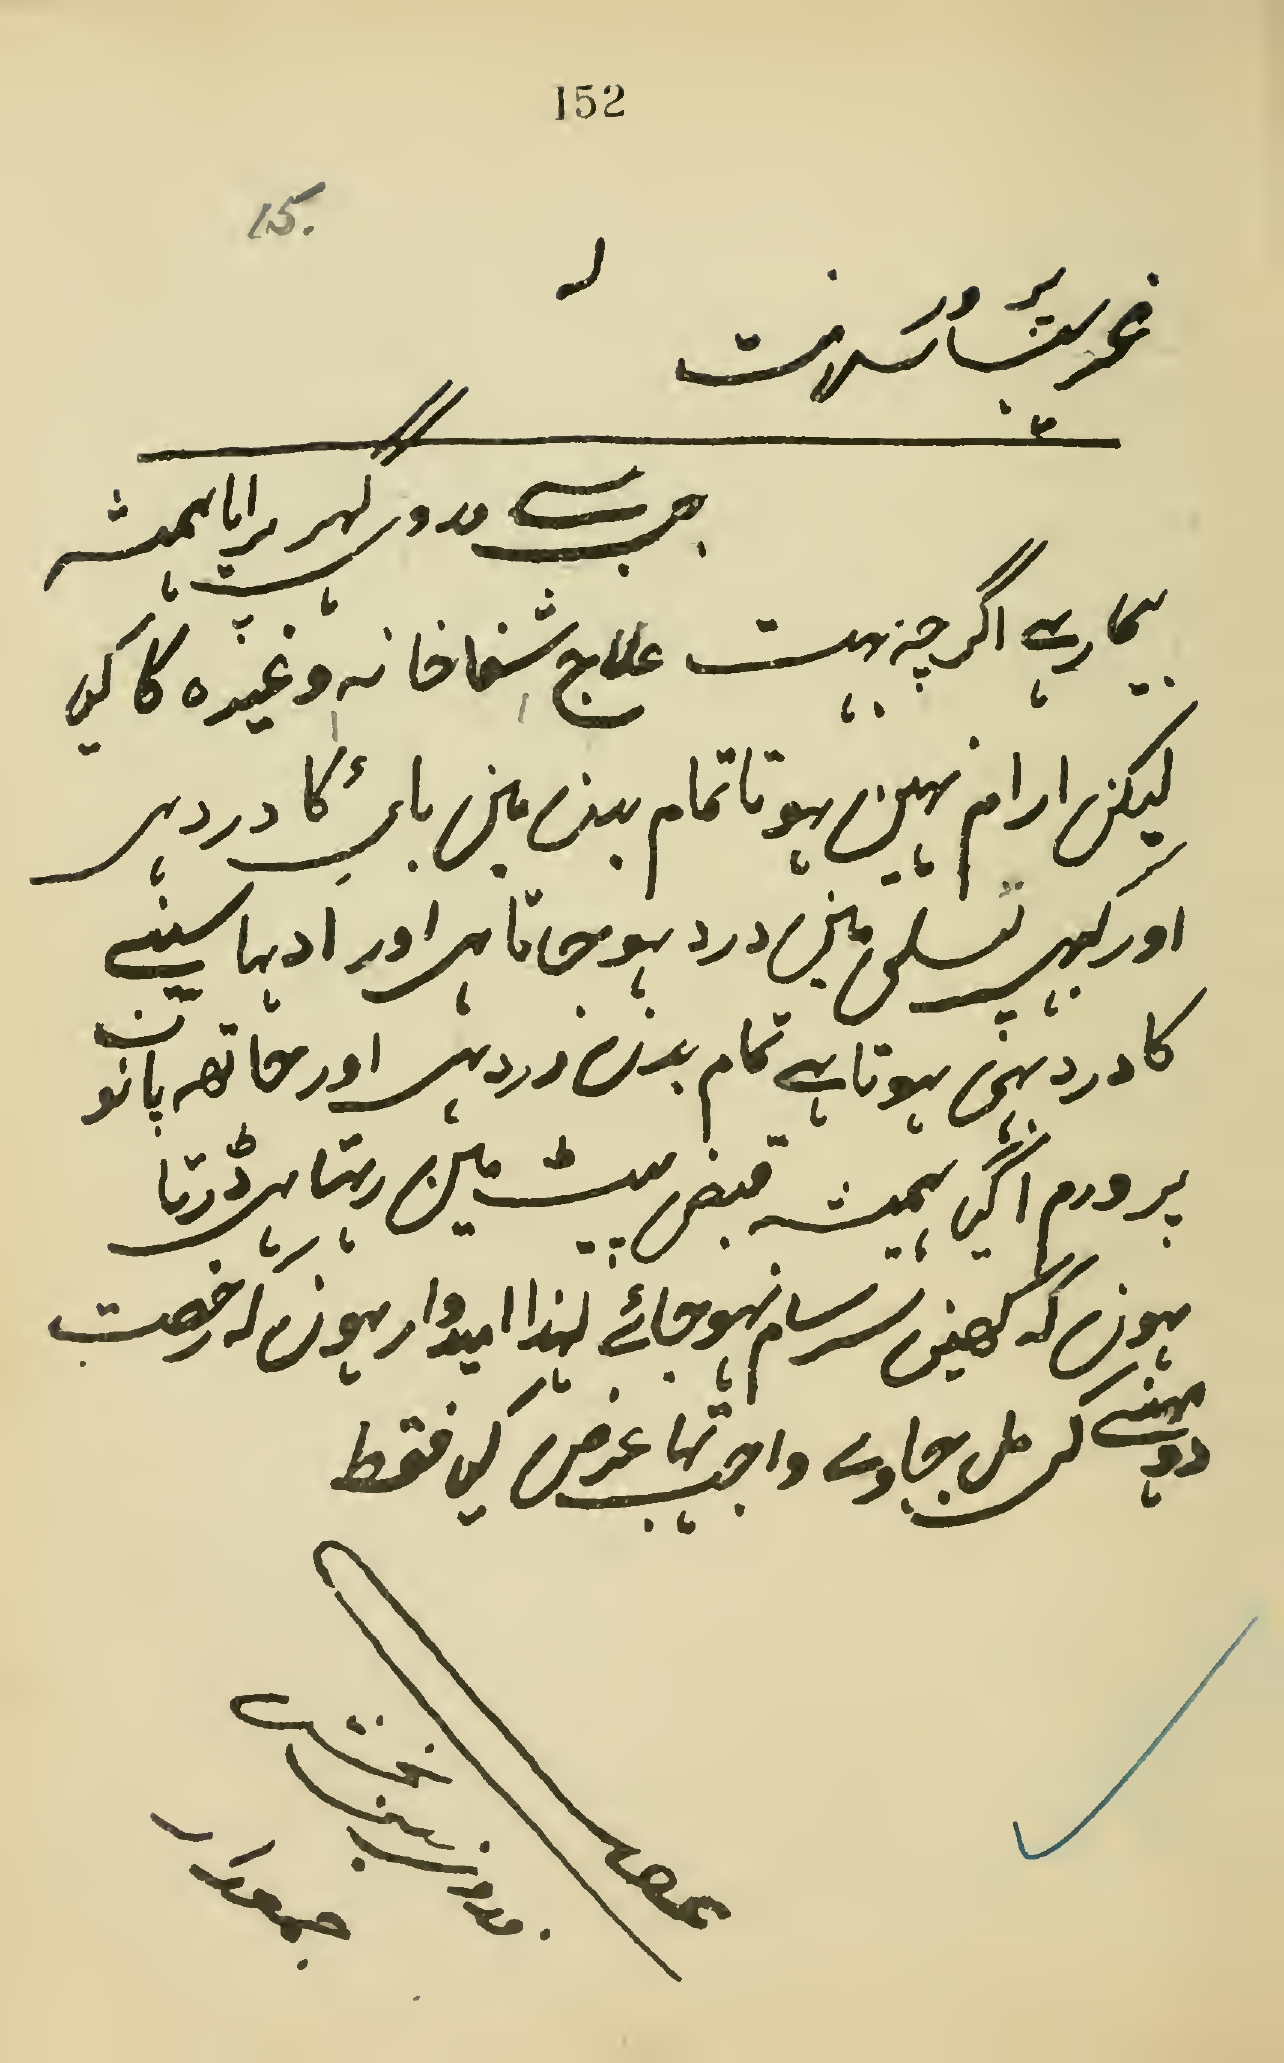 152
15.
غریب پرور سلامت
جب سے فدوی گهر پر ایا ہمیشہ
بیمار ہے اگرچہ بہت علاج شفاخانہ وغیره کا کیا
لیکن ارام نہین ہوتا تمام بدن مین بائی کا درد ہی
اور کبهی پسلی مین درد ہو جاتا ہی اور ادہا سیسے
کا درد بہی ہوتا ہے تمام بدن درد ہی اور هاتهہ پانون
پر ورم اگیا ہمیشہ قبض پیٹ مین رہتا ہی ڈرتا
ہون کہ کہین سرسام نہو جائے لہذا امیدوار ہون کہ رخصت
دو مہینے کی مل جاوے واجب تہا عرض کیا فقط
عرضی
فدوی بخش
جمعدار